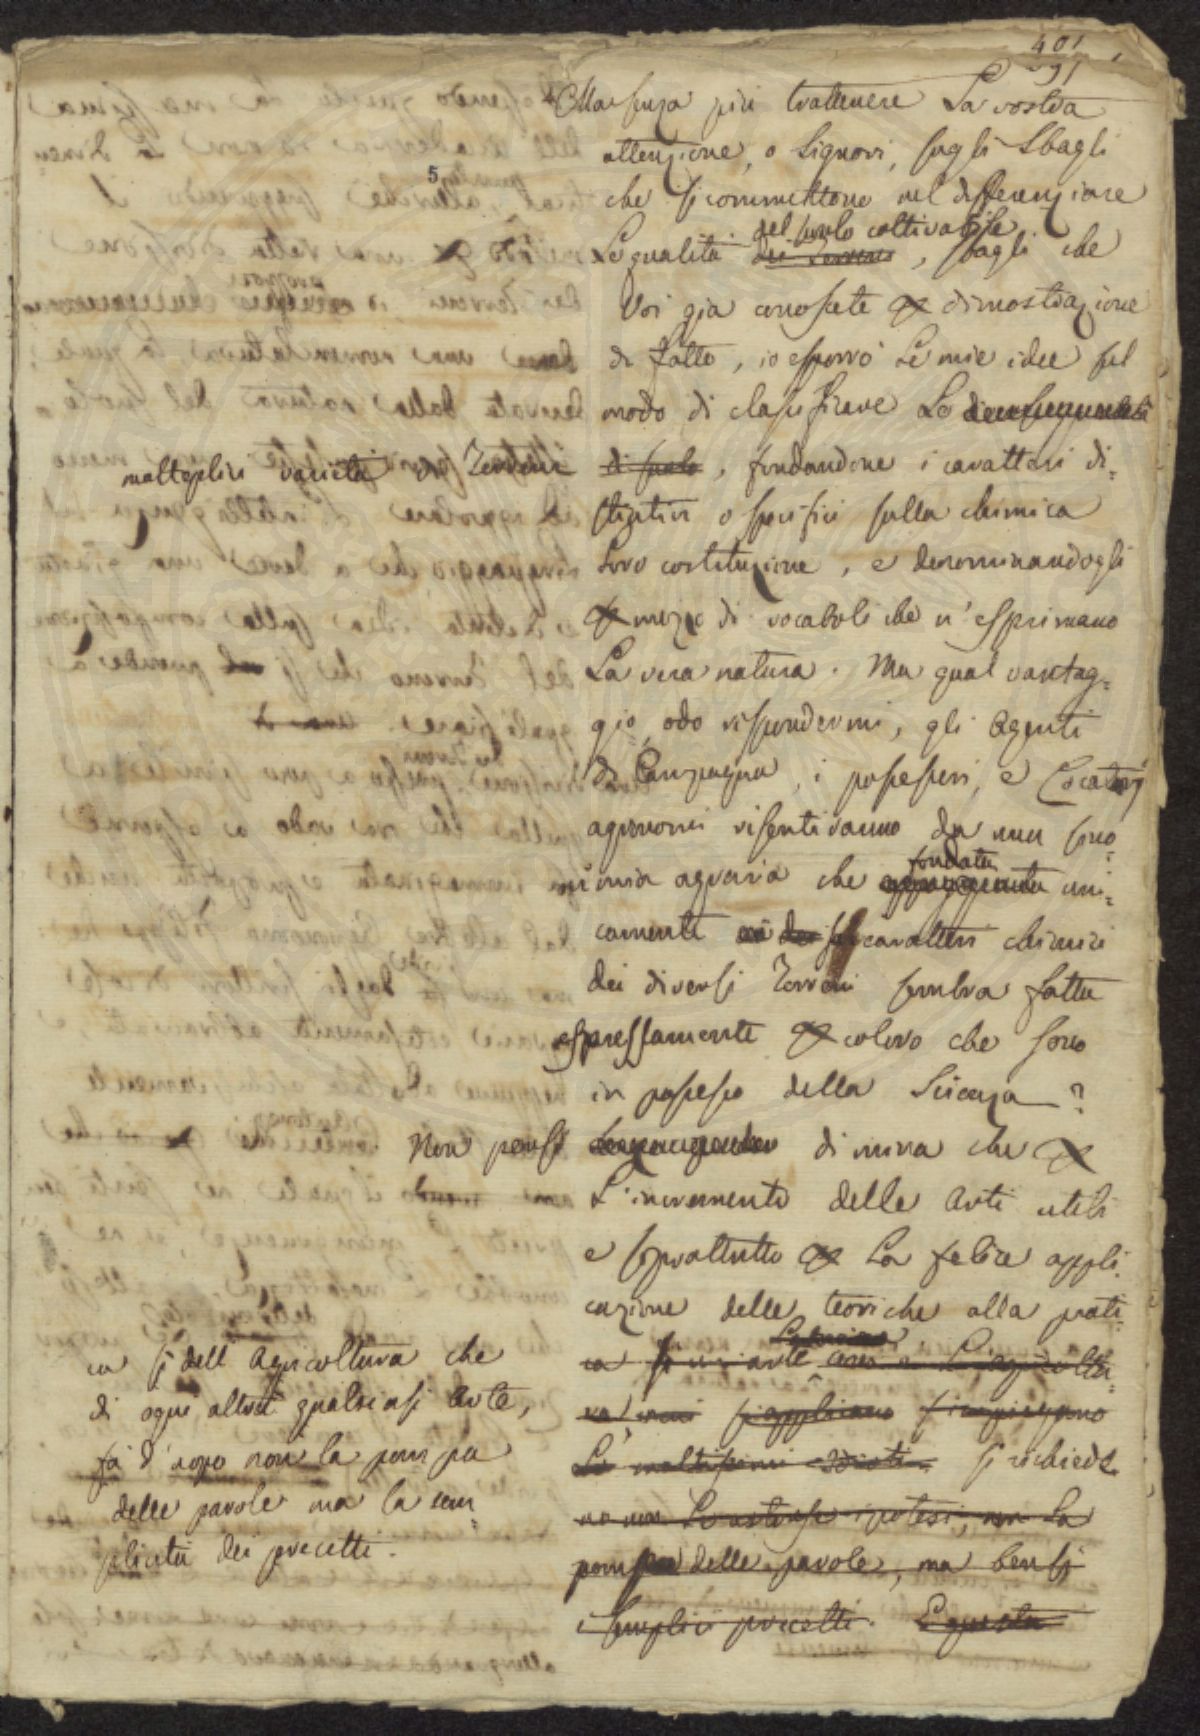 401
91
5
Ma senza più trattenere la vostra
attenzione, o Signori, sugli sbagli
che si commettono nel differenziare
del suolo coltivabile
le qualità dei Terreni, sbagli che
Voi già conoscete dimostrazione
di fatto, io esporrò le mie idee sul
modo di classificare le
molteplici varietà di Terreni
di suolo, fondandone i caratteri di=
stintivi o specifici sulla chimica
loro costituzione, e denominandogli
mezzo di vocaboli che n'esprimano
la vera natura. Ma qual vantag=
gio, odo rispondermi, gli Agenti
di Campagna, i possessori, e Locatarj
agronomi risentiranno da una sino=
nimia agraria che
fondata
uni=
camente sui caratteri chimici
dei diversi Terreni sembra fatta
espressamente coloro che sono
in possesso della Scienza?
Non persi
di mira che
l'incremento delle Arti utili
e soprattutto la felice appli=
cazione delle teoriche alla prati=
ca sì dell'Agricoltura che
di ogni altra qualsiasi Arte,
fa d'uopo non la pompa
delle parole ma la sem
plicità dei precetti.
si richiedo
no non le astruse ipotesi, non la
pompa delle parole, ma bensì
i semplici precetti. E questa